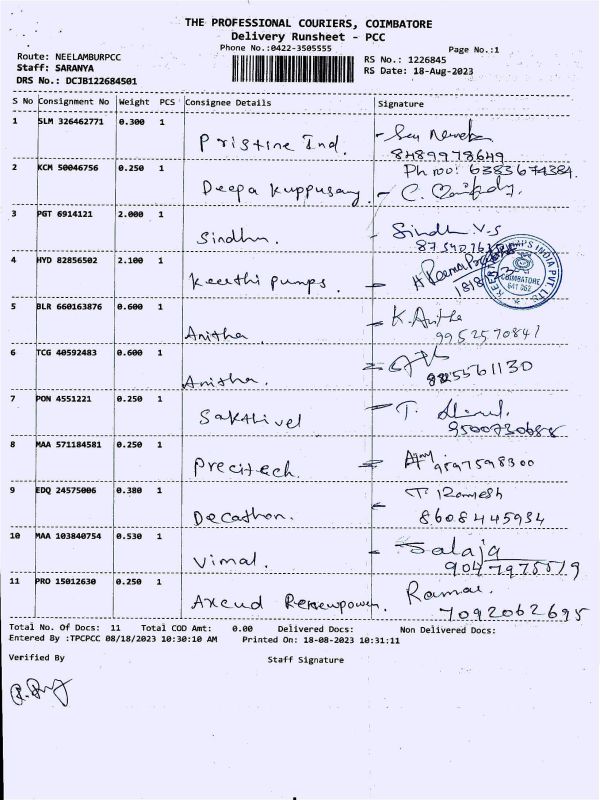 THE PROFESSIONAL COURIERS, COIMBATORE
Delivery Runsheet - PCC
Phone No.:0422-3505555
Page No.:1
Route: NEELAMBURPCC
RS No.: 1226845
Staff: SARANYA
RS Date: 18-Aug-2023
DRS No.: DCJB122684501
S No Consignment No Weight PCS Consignee Details Signature
1 SLM 326462771 0.300 1 Pristine Ind.
8489978649
2 KCM 50046756 0.250 1 Deepa Kuppusamy
Ph no: 6383674384.
3 PGT 6914121 2.000 1 Sindhu. Sindhu V.S
4 HYD 82856502 2.100 1 Keerthi Pumps.
COIMBATORE
5 BLR 660163876 0.600 1 Anitha K. Anitha
9952570841
6 TCG 40592483 0.600 1 Anitha.
7 PON 4551221 0.250 1 Sakthivel T.
8 MAA 571184581 0.250 1 Precitech.
9597598300
9 EDQ 24575006 0.380 1 Decathon. T. Ramesh
8608445934
10 MAA 103840754 0.530 1 Vimal. Salaja
11 PRO 15012630 0.250 1 Renewpower.
7092062695
Total No. Of Docs: 11 Total COD Amt: 0.00 Delivered Docs: Non Delivered Docs:
Entered By :TPCPCC 08/18/2023 10:30:10 AM Printed On: 18-08-2023 10:31:11
Verified By Staff Signature